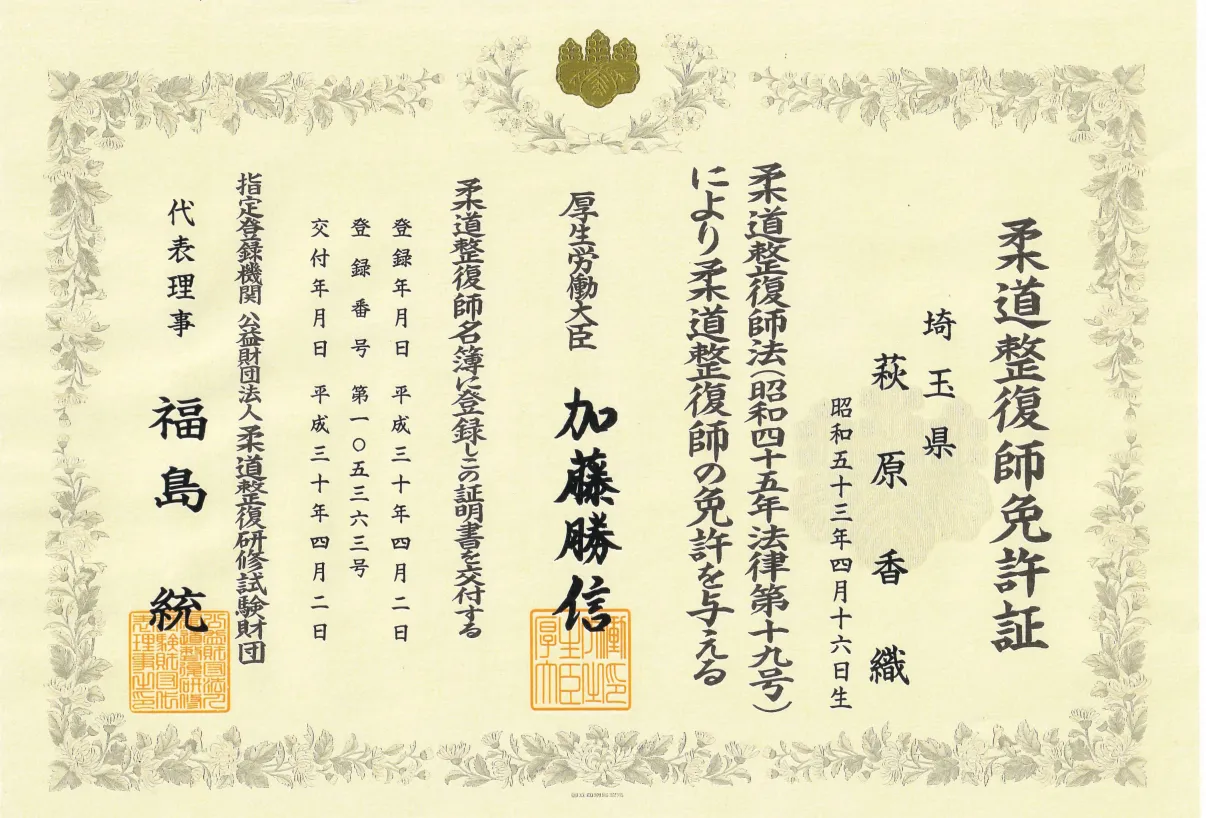 柔道整復師免許証
埼玉県
萩原香織
昭和五十三年四月十六日生
柔道整復師法(昭和四十五年法律第十九号)
により柔道整復師の免許を与える
厚生労働大臣 加藤勝信
柔道整復師名簿に登録しこの証明書を交付する
登録年月日 平成三十年四月二日
登録番号 第一〇五三六三号
交付年月日 平成三十年四月二日
指定登録機関 公益財団法人 柔道整復研修試験財団
代表理事 福島統